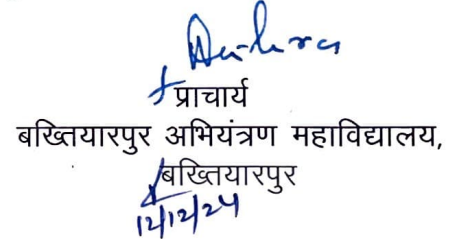 प्राचार्य
बख्तियारपुर अभियंत्रण महाविद्यालय,
बख्तियारपुर
12/12/24